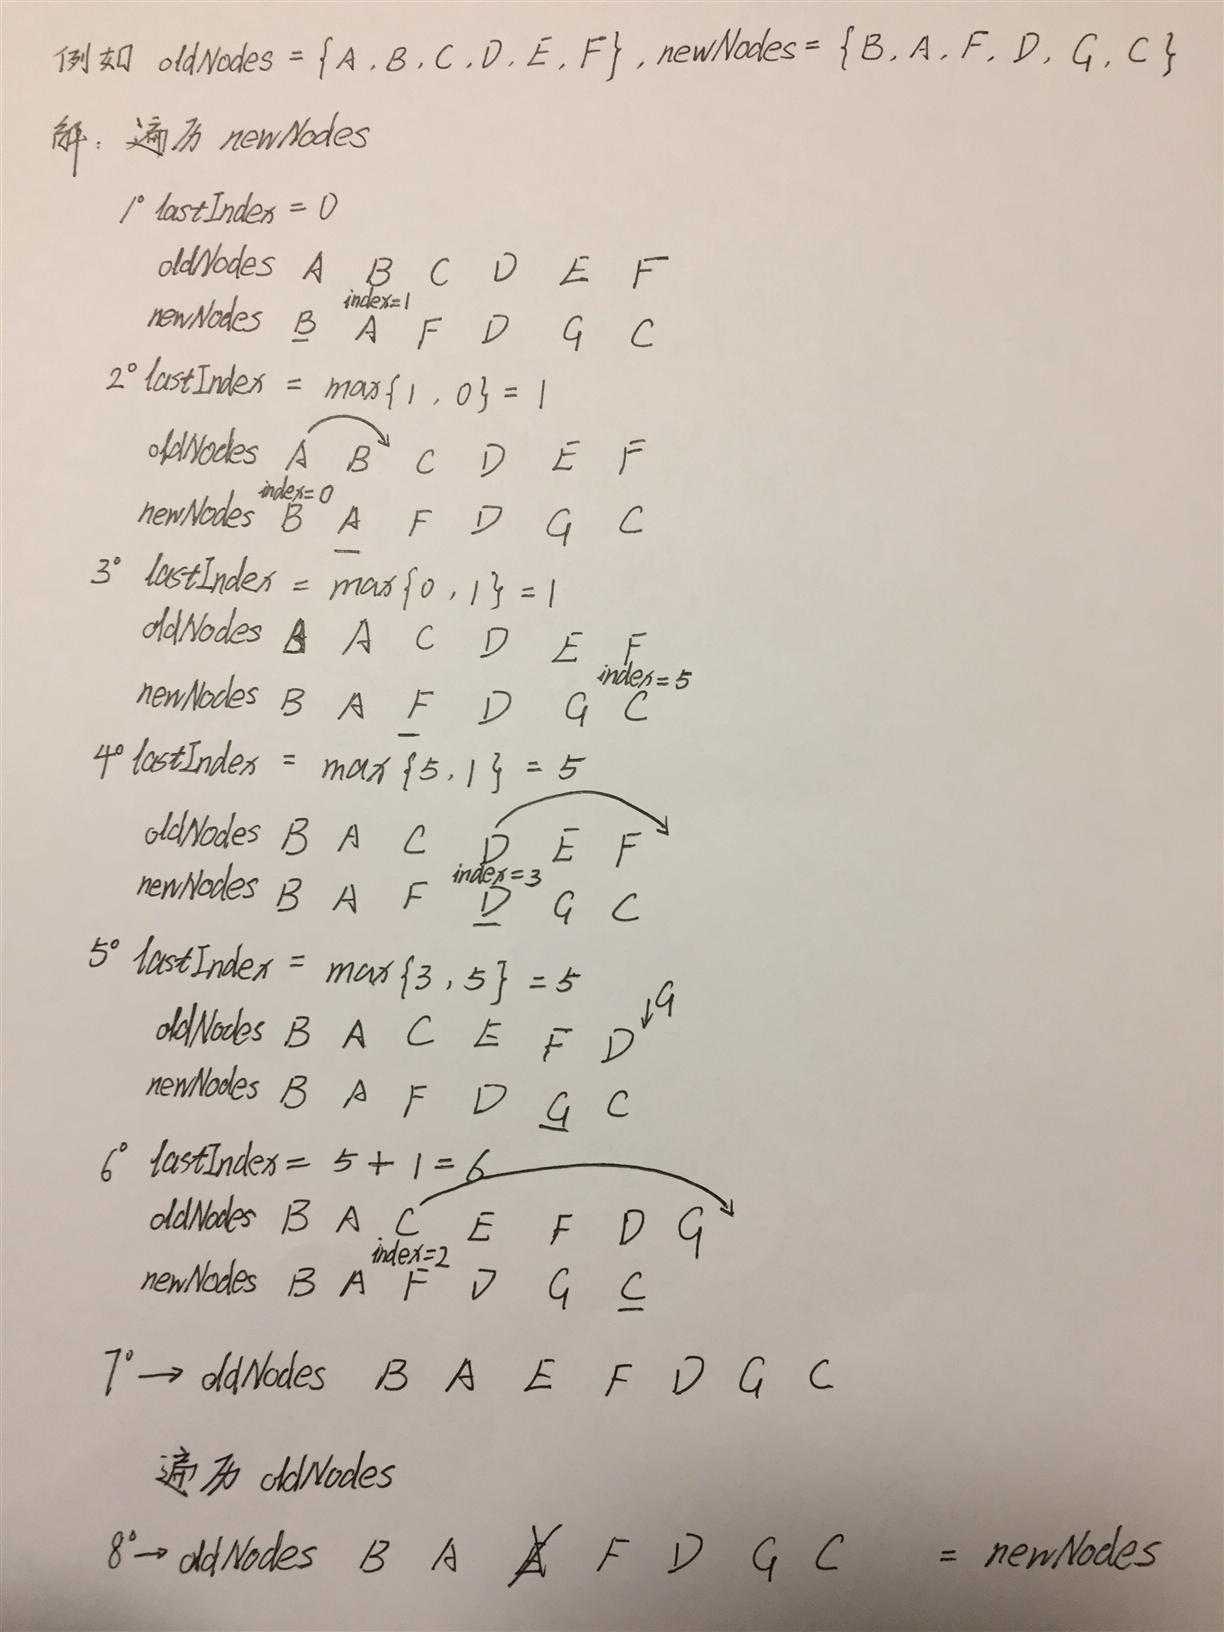 例如 oldNodes = {A, B, C, D, E, F}, newNodes = {B, A, F, D, G, C}
解: 遍历 newNodes
1° lastIndex = 0
oldNodes A B C D E F
index=1
newNodes B A F D G C
2° lastIndex = max{1, 0} = 1
oldNodes A B C D E F
index=0
newNodes B A F D G C
3° lastIndex = max{0, 1} = 1
oldNodes B A C D E F
index=5
newNodes B A F D G C
4° lastIndex = max{5, 1} = 5
oldNodes B A C D E F
index=3
newNodes B A F D G C
5° lastIndex = max{3, 5} = 5
G
oldNodes B A C E F D
newNodes B A F D G C
6° lastIndex = 5 + 1 = 6
oldNodes B A C E F D G
index=2
newNodes B A F D G C
7° → oldNodes B A E F D G C
遍历 oldNodes
8° → oldNodes B A E F D G C = newNodes